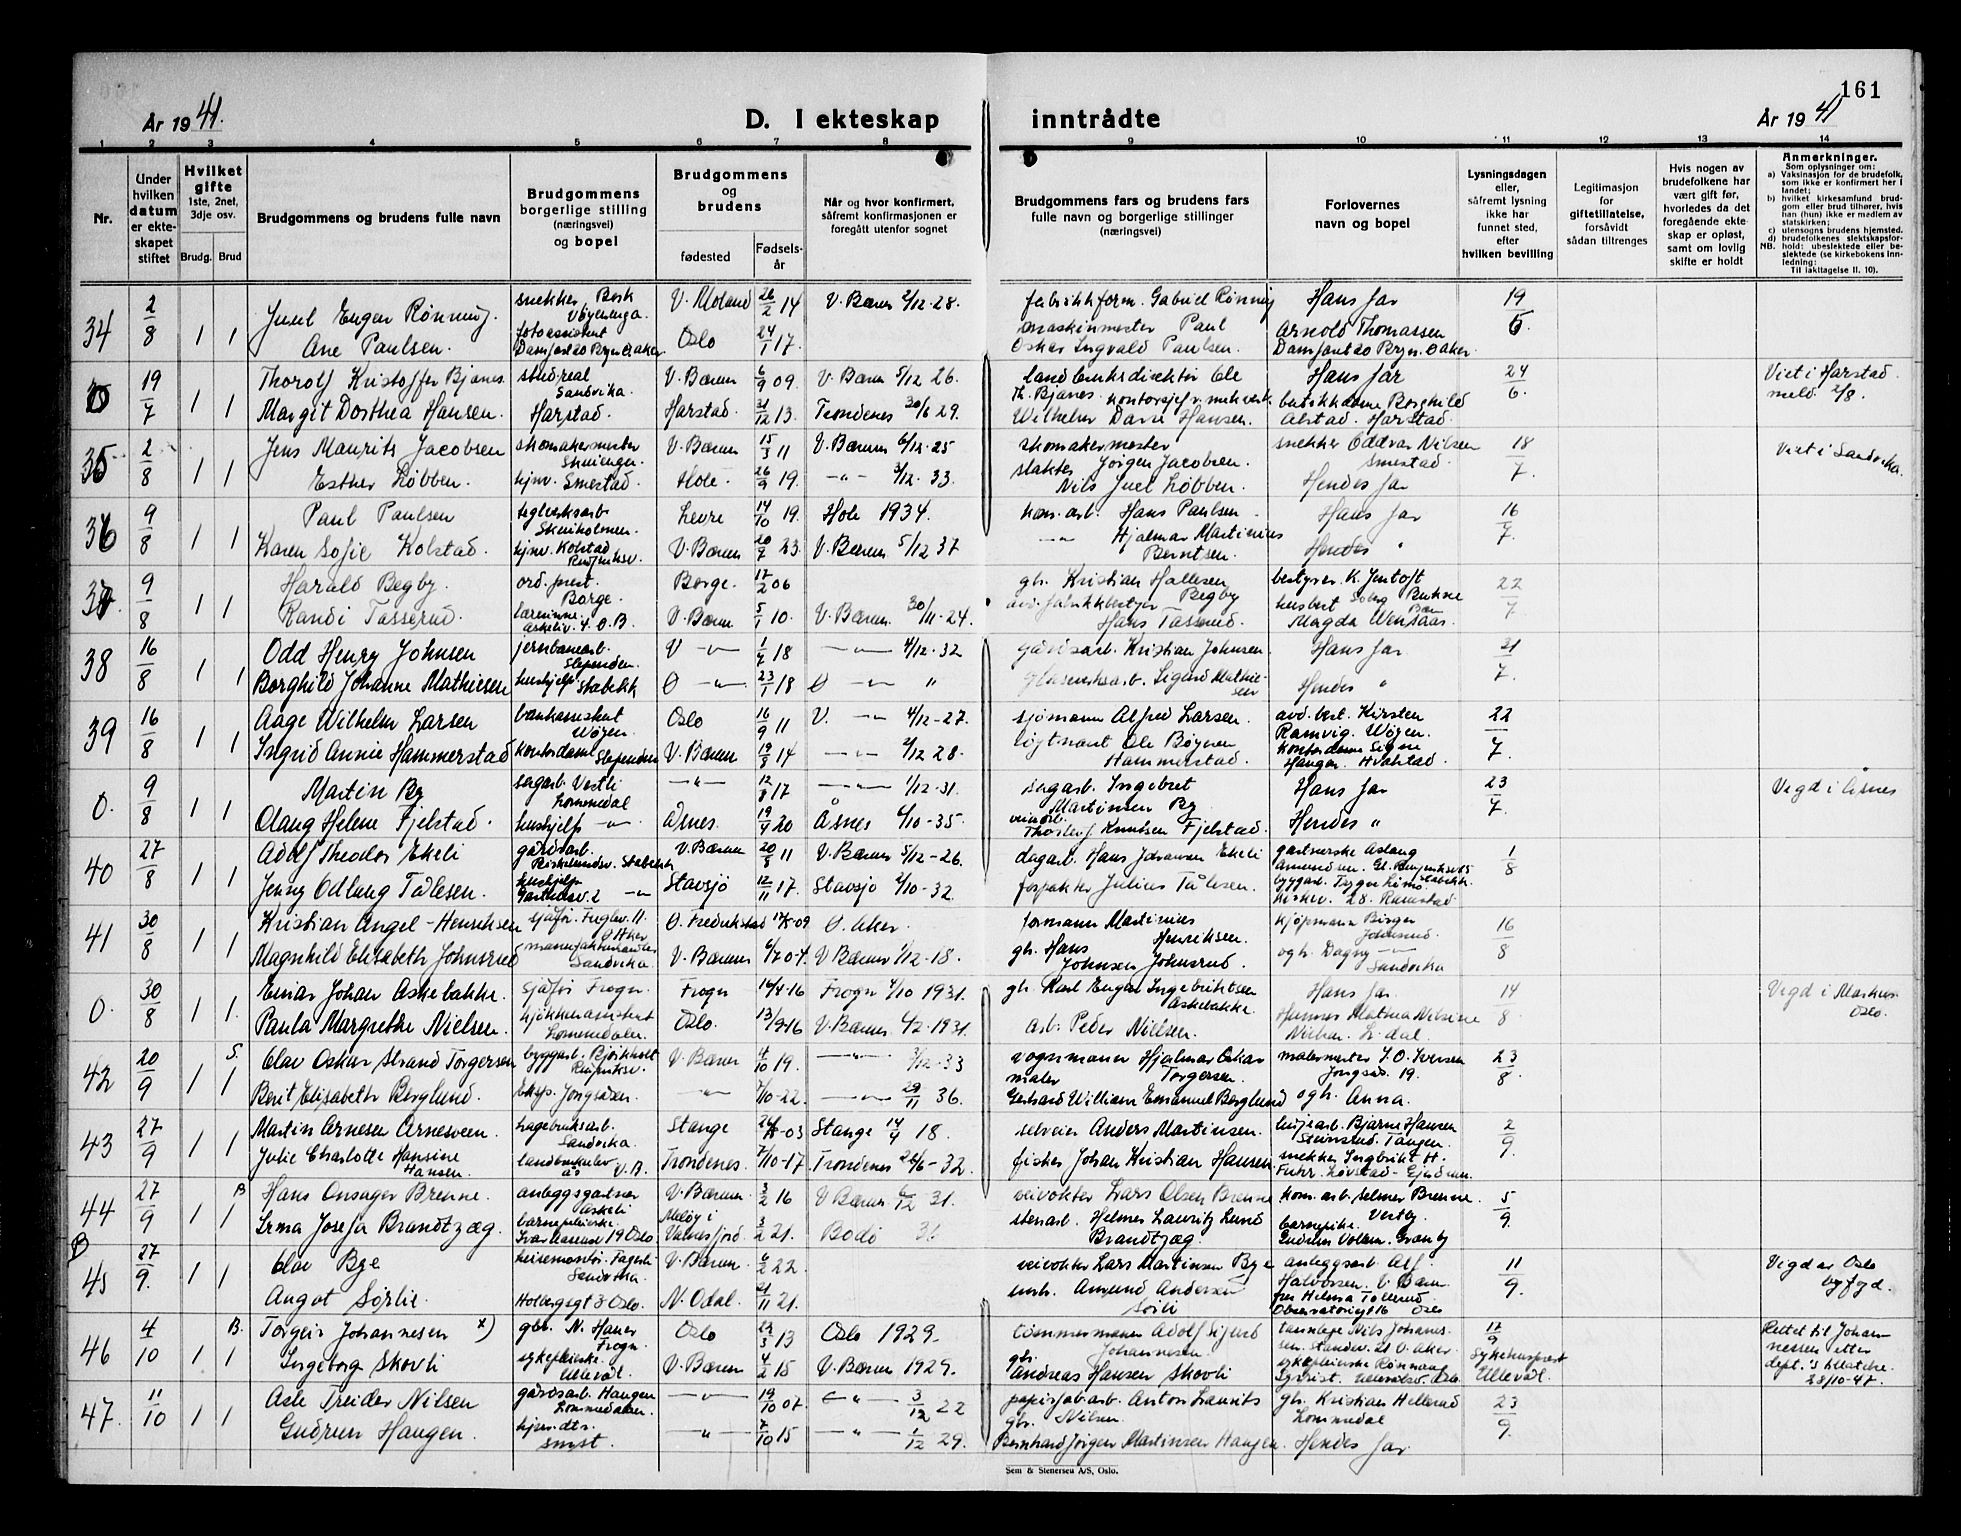 161
År 19 41. D. I ekteskap inntrådte År 19 41
1 2 3 4 5 6 7 8 9 10 11 12 13 14
Nr.
Under hvilken datum er ekteskapet stiftet
Hvilket gifte 1ste, 2net, 3dje osv.
Brudg. Brud
Brudgommens og brudens fulle navn
Brudgommens borgerlige stilling (næringsvei) og bopel
Brudgommens og brudens
fødested Fødselsår
Når og hvor konfirmert, såfremt konfirmasjonen er foregått utenfor sognet
Brudgommens fars og brudens fars fulle navn og borgerlige stillinger (næringsvei)
Forlovernes navn og bopel
Lysningsdagen eller, såfremt lysning ikke har funnet sted, efter hvilken bevilling
Legitimasjon for giftetillatelse, forsåvidt sådan tiltrenges
Hvis nogen av brudefolkene har vært gift før, hvorledes da det foregående ekteskap er opløst, samt om lovlig skifte er holdt
Anmerkninger.
Som oplysninger om:
a) Vaksinasjon for de brudefolk, som ikke er konfirmert her i landet;
b) hvilket kirkesamfund brudgom eller brud tilhører, hvis han (hun) ikke er medlem av statskirken;
c) utensogns brudens hjemsted.
d) brudefolkenes slektskapsforhold: ubeslektede eller beslektede (se kirkebokens innledning:
NB. Til iakttagelse II. 10).
34 2/8 1 1 Juul Eugen Rønning. snekker Bork V. Moland 26/2 14 V. Bærum 2/12 28. fabrikkform. Gabriel Rønning Hans far 19/6
Ane Paulsen. fotoassistent Oslo 24/1 17. maskinmester Paul Oskar Ingvald Paulsen. Arnold Thomassen
19/7 1 1 Thorolf Kristoffer Bjanes. stud. real Sandvika. V. Bærum 6/9 09. V. Bærum 5/12 26. landbruksdirektør Ole Th. Bjanes. Hans far 24/6. Viet i Harstad meld. 2/8.
Margit Dorthea Hansen. Harstad. Harstad. 31/12 13. Trondenes 30/6 29. Wilhelm Hansen. Borghild Alstad. Harstad.
35 2/8 1 1 Jens Maurits Jacobsen skomakermester V. Bærum 15/3 11 V. Bærum 6/12-25 skomakermester Jørgen Jacobsen. snekker Oddvar Nilsen Smestad. 18/7. Viet i Sandvika.
Esther Løbben. hjmv. Smestad. Hole. 26/9 19. -"- 3/12. 33. slakter Nils Juel Løbben. Hendes far
36 9/8 1 1 Paul Paulsen teglverksarb Levre 14/10 19. Hole 1934. kom. arb. Hans Paulsen Hans far 16/7.
Karen Sofie Kolstad. hjmv. Kolstad V. Bærum 20/7 23. V. Bærum 5/12 37 -"- Hjalmar Martinius Berntsen. Hendes "
37. 9/8 1 1 Harald Begby. ord. prest. Borge. Borge. 17/2 06 gbr. Kristian Hallesen Begby bestyrer K. Jentoft 22/7
Randi Tasserud. lærerinne. Ø. Bærum 5/1 10. V. Bærum. 30/11-24. Hans Tasserud. Magda Wensaas.
38 16/8 1 1 Odd Henry Johnsen jernbanearb. Slependen. V -"- 1/7 18 -"- 4/12. 32 gårdsarb. Kristian Johnsen. Hans far 31/7.
Borghild Johanne Mathiesen hushjelp Stabekk Ø -"- 23/1 18 Ø -"- " Sigurd Mathiesen Hendes "
39 16/8 1 1 Aage Wilhelm Larsen bankassistent Wøyen. Oslo 16/9 11 V. -"- 4/12-27. sjømann Alfred Larsen. Kirsten Ramvig. Wøyen. 22/7.
Ingrid Annie Hammerstad kontordame Slependen V. Bærum 19/9 14 -"- 2/12 28. løytnant Ole Bøymen Hammerstad. kontordame Signe Hanger. Hvalstad.
0. 9/8 1 1 Martin By sagarb. Vestli Lommedal -"- 12/8 17 -"- 1/12-31. sagarb. Ingebret Martinsen By Hans far 23/7. Vigd i Åsnes
Olaug Helene Fjelstad. hushjelp -"- Åsnes. 19/4 20 Åsnes 6/10-35. veivokt. Knutsen Fjelstad. Hendes "
40 27/8 1 1 Adolf Theodor Ekeli gårdsarb. Stabekk V. Bærum 20/5 11 V. Bærum 5/12-26. dagarb. Hans Johansen Ekeli gartnerske Aslaug Amundsen. 1/8
Jenny Odlaug Tallesen. hushjelp -"- Stavsjø 12/11 17. Stavsjø 2/10-32. forpakter Julius Tålesen. byggarb. Trygve
41 30/8 1 1 Kristian Angel-Henriksen sjåfør. Fuglev. 11. Ø. Aker Ø. Fredrikstad Ø. Aker. formann Martinius Henriksen. kjøpmann Birger Johnsrud. 16/8
Magnhild Elisabeth Johnsrud Sandvika V. Bærum 6/7 04. V Bærum 1/12-18. gbr. Hans Johnsen Johnsrud. og fr. Dagny -"- Sandvika
0. 30/8 1 1. Einar Johan Askebakke. sjåfør Frogn. Frogn 16/4-16 Frogn 4/10 1931. gbr. Karl Eugen Ingebriktsen Askebakke Hans far 14/8. Vigd i Markus Oslo.
Paula Margrethe Nielsen. kjøkkenassistent Lommedalen. Oslo. 13/9-16 V. Bærum 6/12-1931. arb. Peder Nielsen. Hennes Mathea Nilsine
42 20/9 1 S. 1 Olav Oskar Strand Torgersen byggarb. Bjørkholt V. Bærum 4/10 19. -"- 3/12-33 vognmann Hjalmar Oskar Torgersen. malermester J. O. Iversen Jongsås. 19. 23/8.
Berit Elisabeth Berglund. Eksp. Jongsåsen. -"- 7/10-22. -"- 29/11 36. maler Gerhard William Emanuel Berglund og fr. Anna.
43 27/9 1 1 Martin Arnesen Arnesveen. hagebruksarb. Sandvika. Stange Stange 14/4 18. selveier Anders Martinsen. Bjarne Hansen Tangen. 2/9.
Julie Charlotte Hansine Hansen. landbrukselev Ås V.B. Trondenes. 7/10-17 Trondenes 26/6-32. fisker Johan Kristian Hansen. snekker Ingbrikt H.
44 27/9 1 B 1 Hans Onsager Brenne. anleggsgartner V. Bærum. 3/2 16 V Bærum 6/12 31. veivokter Lars Olsen Brenne kom. arb. Selmer Brenne. Vestby. 5/9.
Irma Josefa Brandtzæg. barnepleierske. Meløy i 3/2 21. Bodø 36 stenarb. Helmer Lauritz Lund Brandtzæg. barnepike. Gudrun Volden. Granby
B 45 27/9. 1 1 Olav Bye heisemontør. Sandvika. V. Bærum. 6/2 22 veivokter Lars Martinsen Bye anleggsarb Alf Halvorsen. V. Bærum. 11/9. Vigd av Oslo byfgd.
Angot Sørlie. Holbergsgt 3 Oslo. N. Odal. 21/11 21. Amund Andersen Sørli frk Helma Tollerud. Observatoriegt 16 Oslo
46 4/10 1 B. 1 Torgeir Johannesen x) gbr. N. Haner Frogn. Oslo 22/3 13 Oslo 1929. tømmermann Adolf Sigurd Johannesen. tannlege Nils Johannessen. V. Aker. 12/9 Sykehusprest Ullevål. Rettet til Johannessen etter dept.'s tillatelse. 28/10-47.
Ingeborg Skovli sykepleierske. Ullevål. V. Bærum 4/2 15 V. Bærum 1929. gbr. Andreas Hansen Skovli sykepleierske
47. 11/10 1 1 Asle Treider Nilsen gårdsarb. Haugen Lommedalen. -"- 19/10 07 -"- 3/12 22 papirfab. arb. Anton Laurits Nilsen. gbr. Kristian Hellerud Lommedal 23/9.
Gudrun Haugen. hjmv. dts. -"- 7/10 15 -"- 1/12 29. gbr. Bernhard Jørgen Martinsen Haugen. Hendes far
Sem & Stenersen A/S, Oslo.